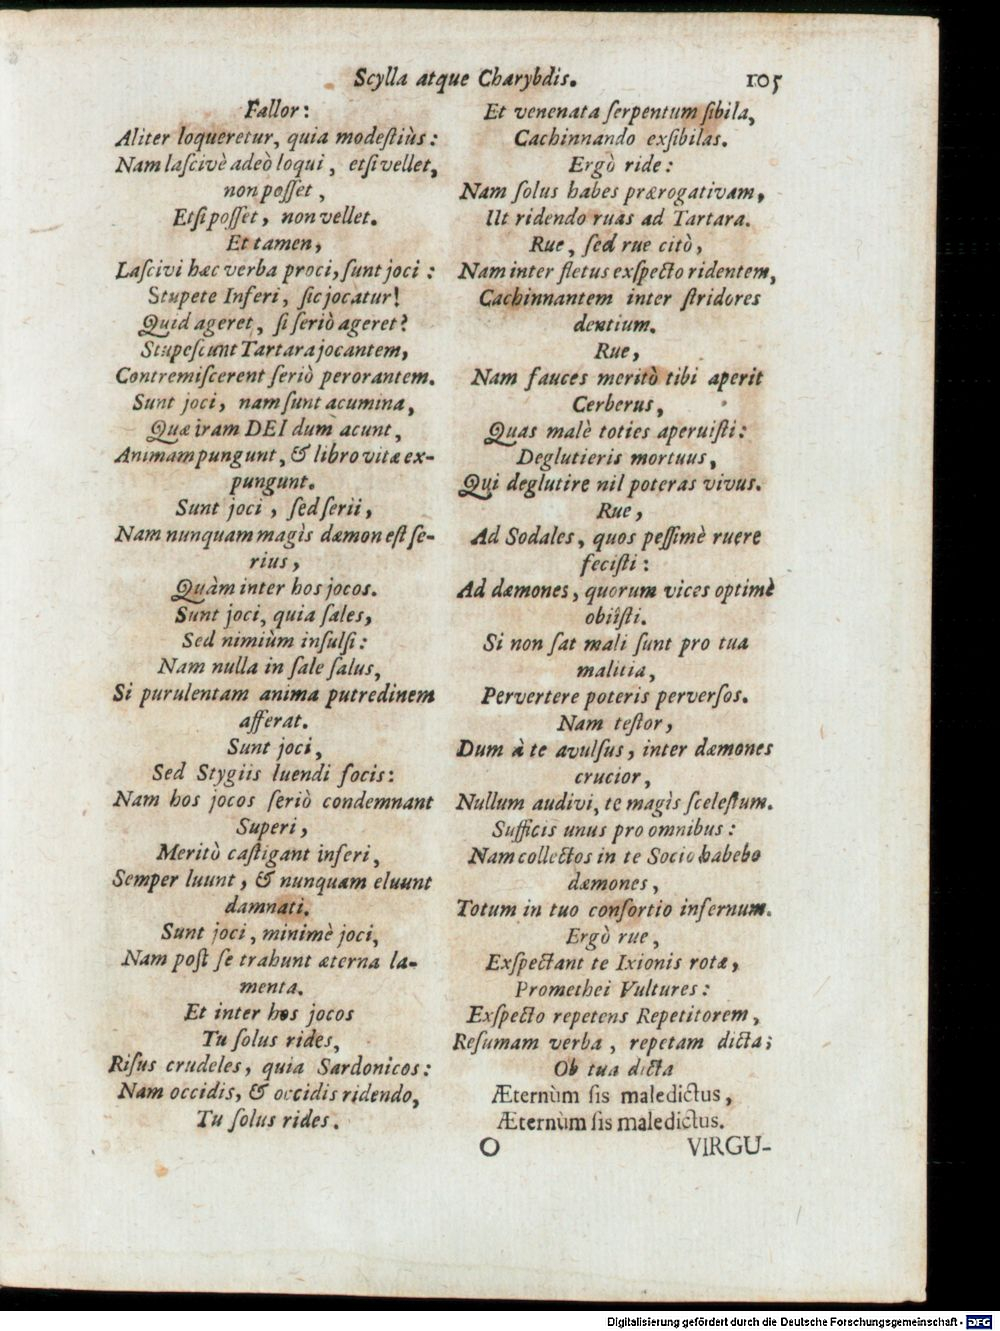 Scylla atque Charybdis. 105
Fallor:
Aliter loqueretur, quia modeſtiùs:
Nam laſcivè adeò loqui, etſi vellet,
non poſſet,
Etſi poſſet, non vellet.
Et tamen,
Laſcivi hæc verba proci, ſunt joci:
Stupete Inferi, ſic jocatur!
Quid ageret, ſi ſeriò ageret?
Stupeſcunt Tartara jocantem,
Contremiſcerent ſeriò perorantem.
Sunt joci, nam ſunt acumina,
Quæ iram DEI dum acunt,
Animam pungunt, & libro vitæ ex-
pungunt.
Sunt joci, ſed ſerii,
Nam nunquam magìs dæmon eſt ſe-
rius,
Quàm inter hos jocos.
Sunt joci, quia ſales,
Sed nimiùm inſulſi:
Nam nulla in ſale ſalus,
Si purulentam anima putredinem
afferat.
Sunt joci,
Sed Stygiis luendi focis:
Nam hos jocos ſeriò condemnant
Superi,
Meritò caſtigant inferi,
Semper luunt, & nunquam eluunt
damnati.
Sunt joci, minimè joci,
Nam poſt ſe trahunt æterna la-
menta.
Et inter hos jocos
Tu ſolus rides,
Riſus crudeles, quia Sardonicos:
Nam occidis, & occidis ridendo,
Tu ſolus rides.
Et venenata ſerpentum ſibila,
Cachinnando exſibilas.
Ergò ride:
Nam ſolus habes prærogativam,
Ut ridendo ruas ad Tartara.
Rue, ſed rue citò,
Nam inter fletus exſpecto ridentem,
Cachinnantem inter ſtridores
dentium.
Rue,
Nam fauces meritò tibi aperit
Cerberus,
Quas malè toties aperuiſti:
Deglutieris mortuus,
Qui deglutire nil poteras vivus.
Rue,
Ad Sodales, quos peſſimè ruere
feciſti:
Ad dæmones, quorum vices optimè
obiîſti.
Si non ſat mali ſunt pro tua
malitia,
Pervertere poteris perverſos.
Nam teſtor,
Dum à te avulſus, inter dæmones
crucior,
Nullum audivi, te magìs ſceleſtum.
Sufficis unus pro omnibus:
Nam collectos in te Socio habebo
dæmones,
Totum in tuo conſortio infernum.
Ergò rue,
Exſpectant te Ixionis rotæ,
Promethei Vultures:
Exſpecto repetens Repetitorem,
Reſumam verba, repetam dicta;
Ob tua dicta
Æternùm ſis maledictus,
Æternùm ſis maledictus.
O VIRGU-
Digitalisierung gefördert durch die Deutsche Forschungsgemeinschaft - DFG